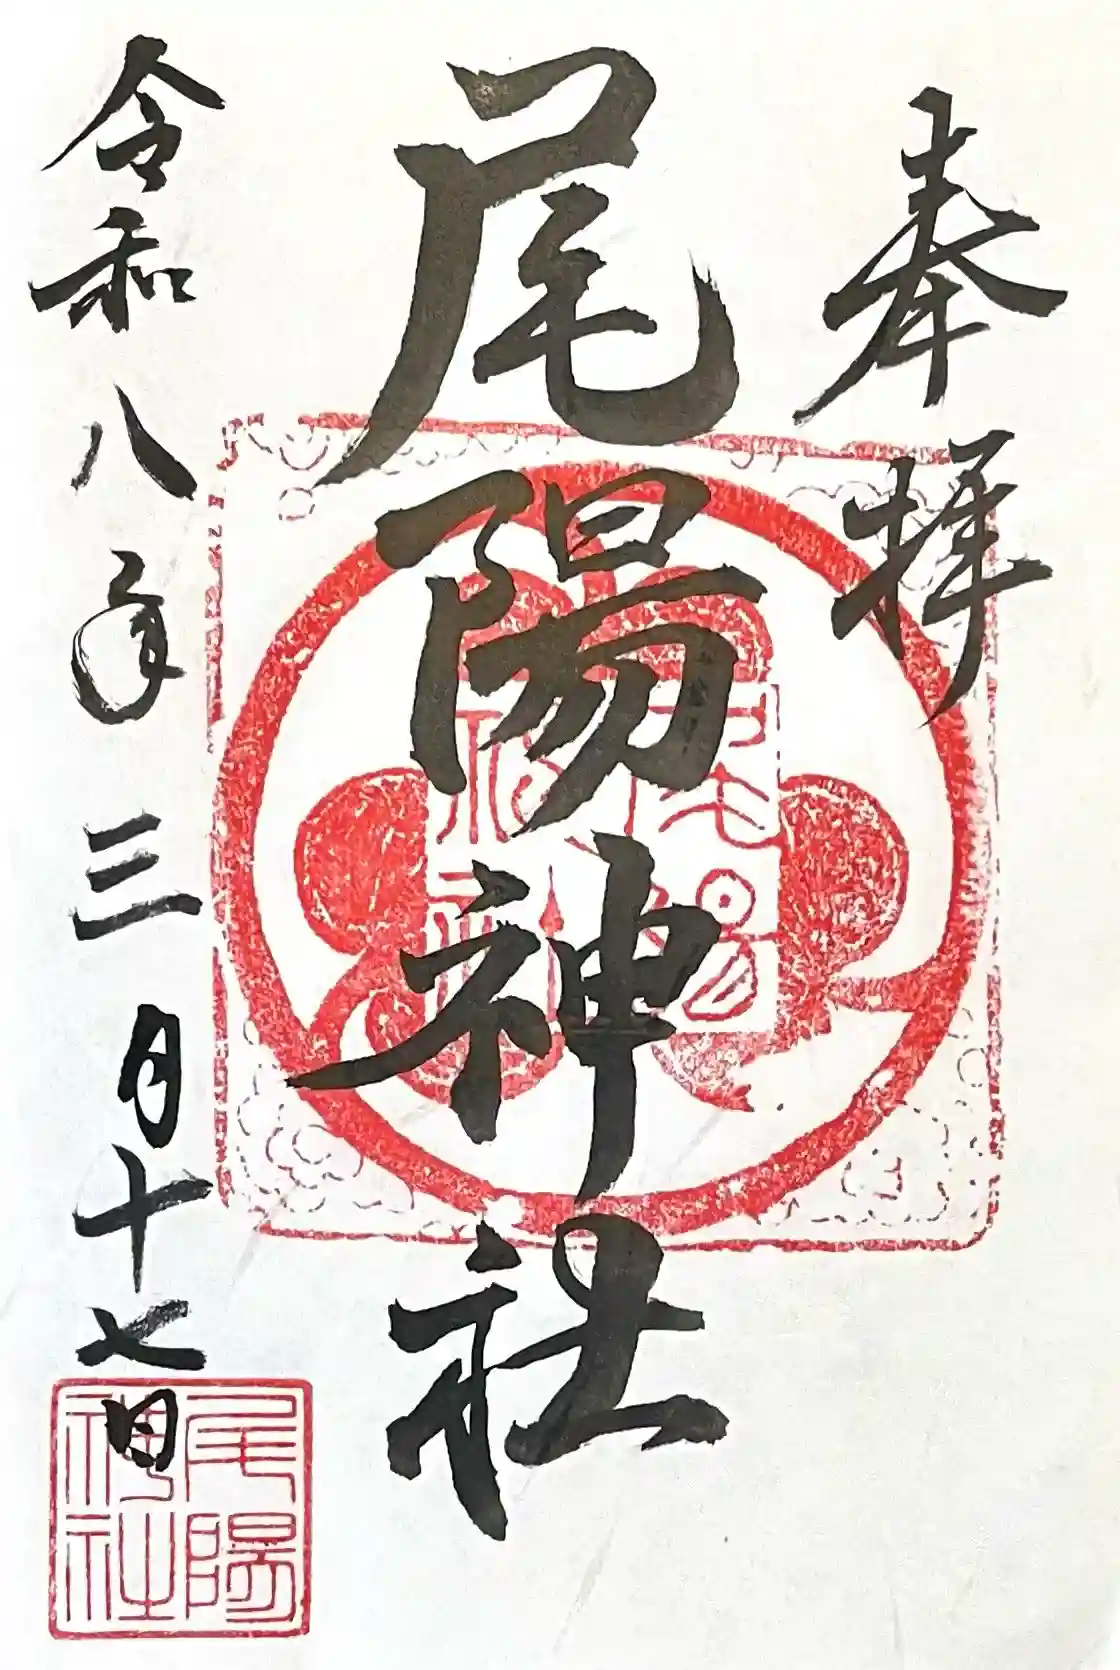 奉拝
尾陽神社
令和八年三月十七日
尾陽
神社
尾陽
神社